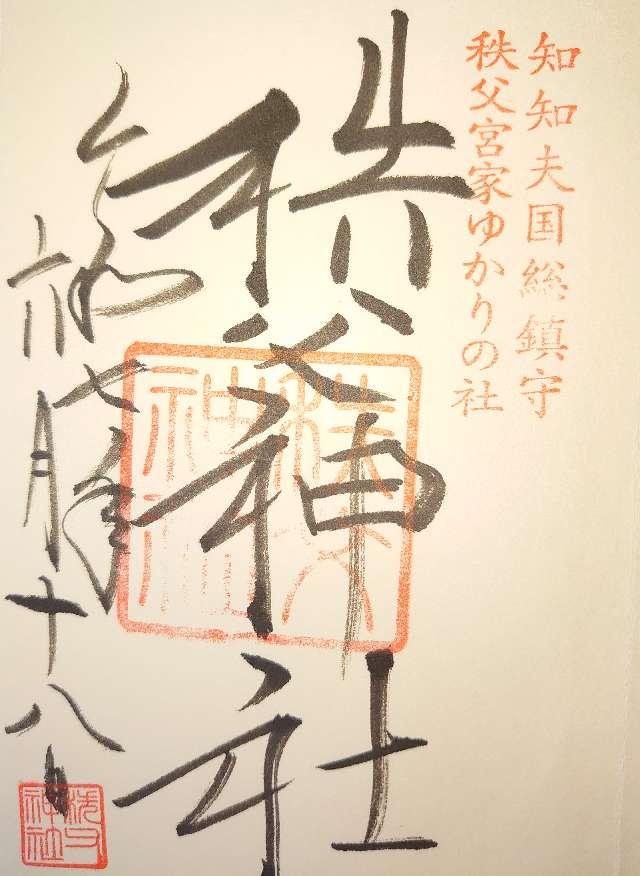 知知夫国総鎮守
秩父宮家ゆかりの社
秩父神社
令和七年
六月十八日
秩父神社
秩父神社